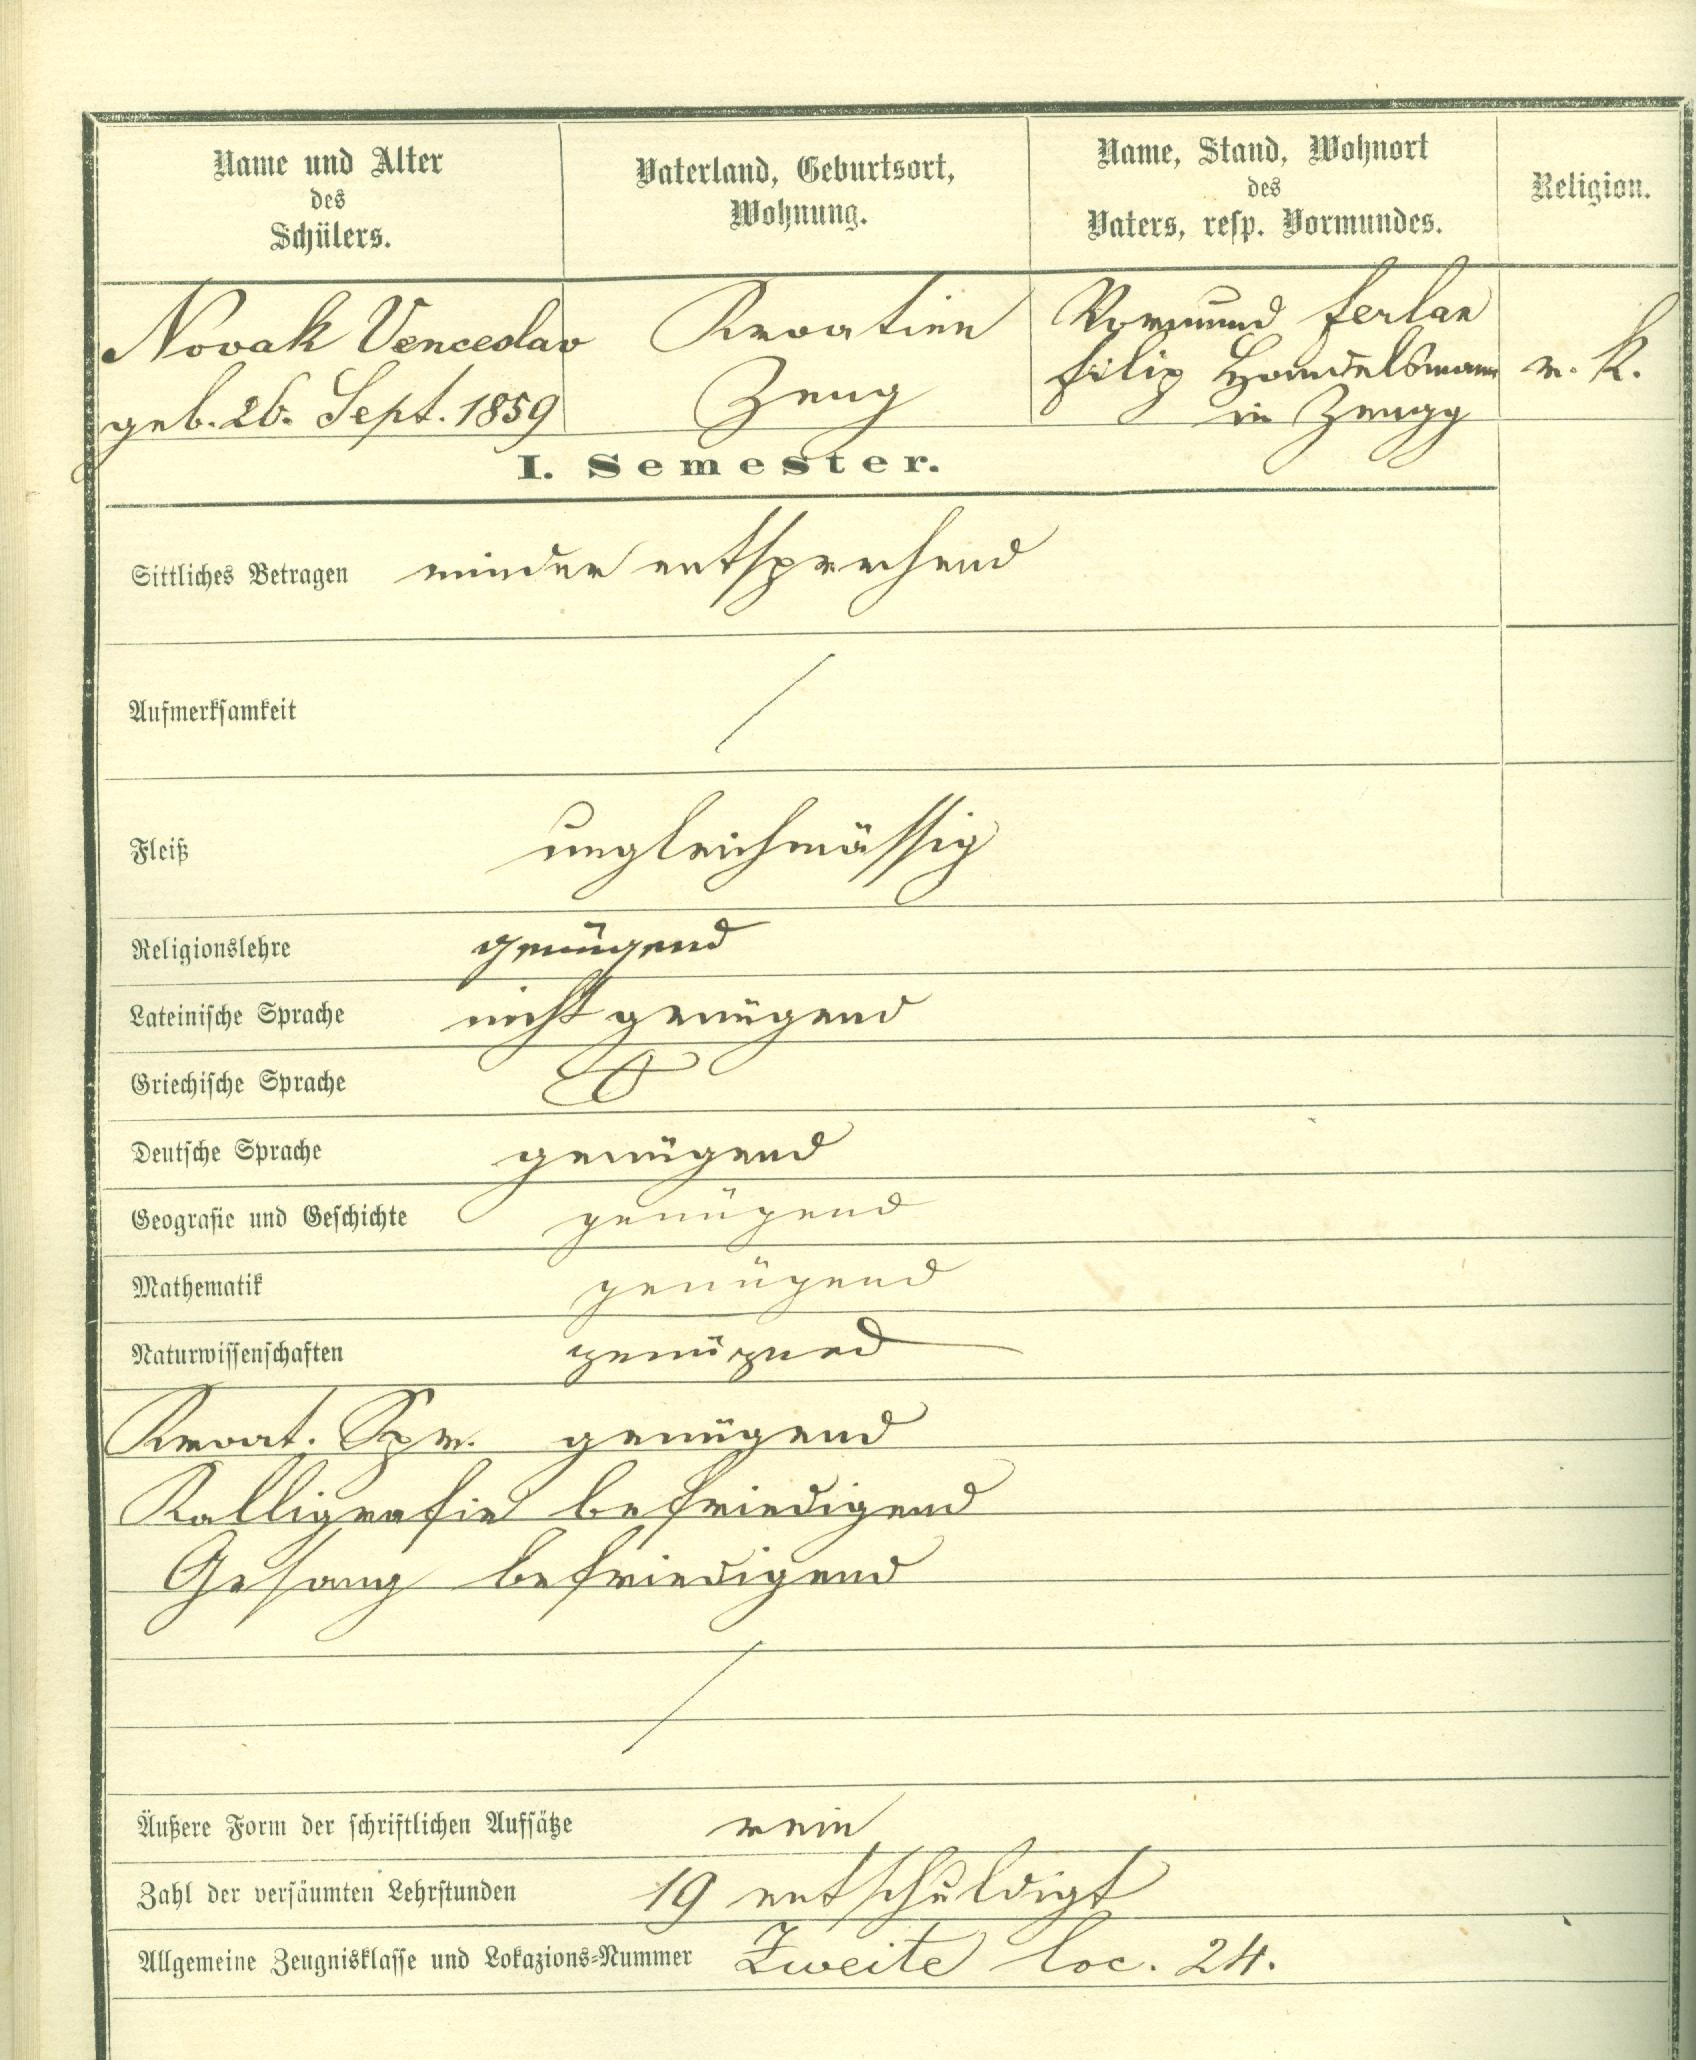 Name und Alter
des
Schülers.
Vaterland, Geburtsort,
Wohnung.
Name, Stand, Wohnort
des
Vaters, resp. Vormundes.
Religion.
Novak Venceslav
geb. 26. Sept. 1859
Kroatien
Zeng
Vormund Ferlan
Filip Handelsmann
in Zengg
r. k.
I. Semester.
Sittliches Betragen minder entsprechend
Aufmerksamkeit /
Fleiß ungleichmässig
Religionslehre genügend
Lateinische Sprache nicht genügend
Griechische Sprache
Deutsche Sprache genügend
Geografie und Geschichte genügend
Mathematik genügend
Naturwissenschaften genügend
Kroat. Spr. genügend
Kalligrafie befriedigend
Gesang befriedigend
/
Äußere Form der schriftlichen Aufsätze rein
Zahl der versäumten Lehrstunden 19 entschuldigt
Allgemeine Zeugnisklasse und Lokazions-Nummer Zweite loc. 24.